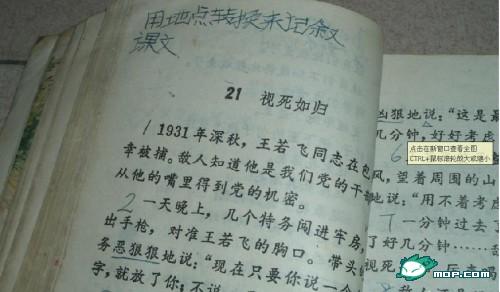 用地点转换来记叙
课文
21 视死如归
1 1931年深秋，王若飞同志在包
幸被捕。敌人知道他是我们党的干部
从他的嘴里得到党的机密。
2 一天晚上，几个特务闯进牢房，
出手枪，对准王若飞的胸口。带头
务恶狠狠地说：“现在只要你说一个
字，就放了你；不说
凶狠地说：“这是最
几分钟，好好考虑
6
风，望着周围的山
地说：“用不着考虑
7 一分钟过去了
了好几分钟……
视死
8
点击在新窗口查看全图
CTRL+鼠标滚轮放大或缩小
MOP.com